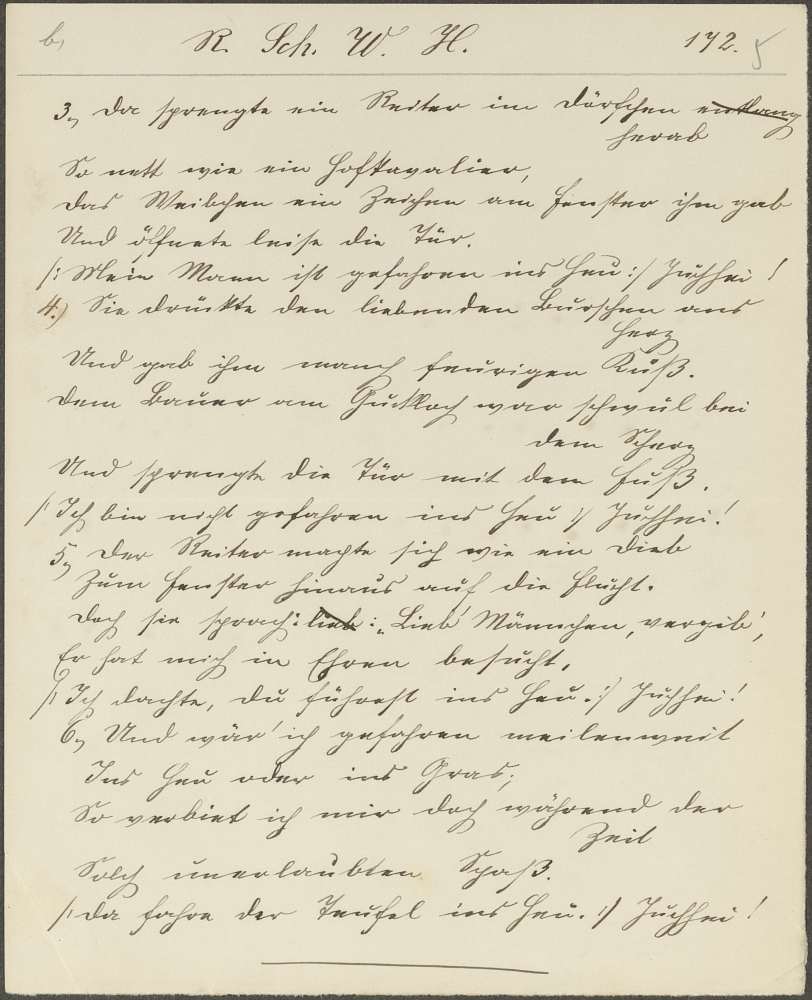 b, R. Sch. W. H. 172. 5
3., Da sprengte ein Reiter im Dörfchen entlang
herab
So nett wie ein Hofkavalier,
Das Weibchen ein Zeichen am Fenster ihm gab
Und öffnete leise die Tür.
/: Mein Mann ist gefahren ins Heu :/ Juchhei!
4.) Sie drückte den liebenden Burschen ans
Herz
Und gab ihm manch feurigen Kuß.
Dem Bauer am Guckloch war schwül bei
dem Scherz
Und sprengte die Tür mit dem Fuß.
/: Ich bin nicht gefahren ins Heu :/ Juchhei!
5., Der Reiter machte sich wie ein Dieb
Zum Fenster hinaus auf die Flucht.
Doch sie sprach: lieb : „Lieb' Männchen, vergib',
Er hat mich in Ehren besucht,
/: Ich dachte, du führest ins Heu. :/ Juchhei!
6., Und wär' ich gefahren meilenweit
Ins Heu oder ins Gras,
So verbiet ich mir doch während der
Zeit
Solch unerlaubten Spaß.
/: Da fahre der Teufel ins Heu. :/ Juchhei!